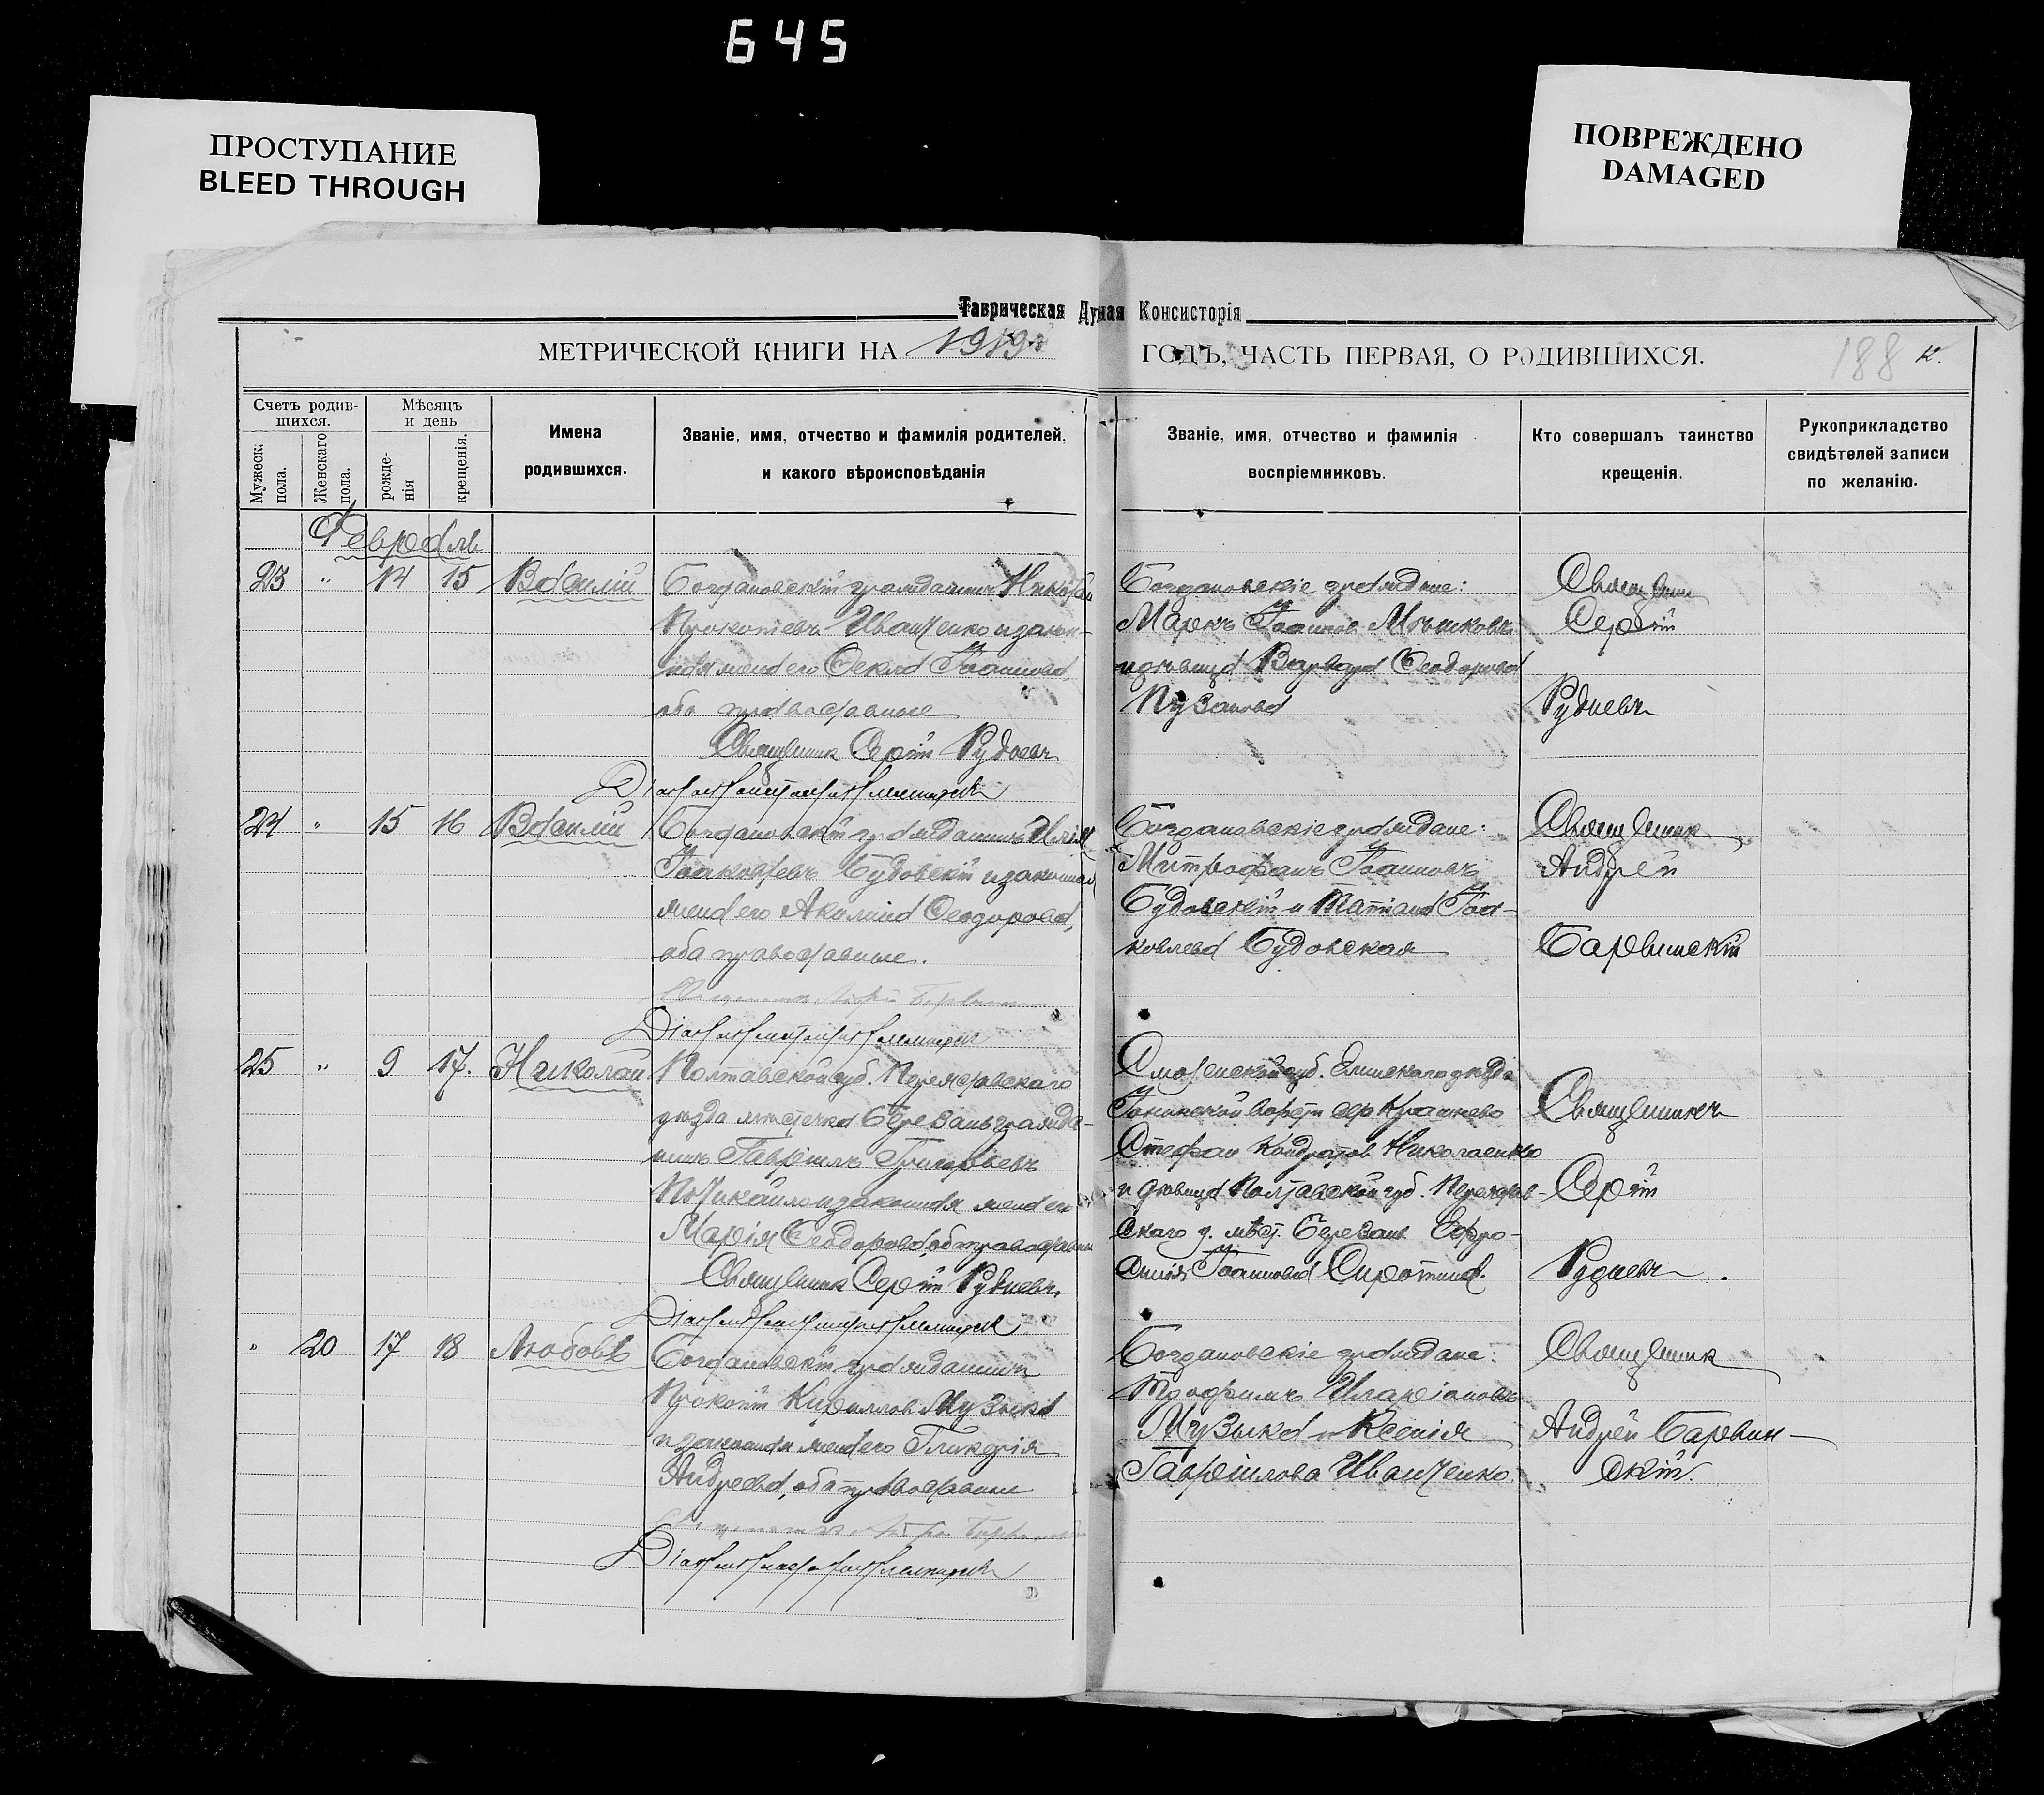 645
ПРОСТУПАНИЕ
BLEED THROUGH
ПОВРЕЖДЕНО
DAMAGED
Таврическая Духная Консисторія
МЕТРИЧЕСКОЙ КНИГИ НА 1919 ГОДЪ, ЧАСТЬ ПЕРВАЯ, О РОДИВШИХСЯ.
188
Счетъ родив-
шихся.
Мужеск.
пола.
Женскаго
пола.
Мѣсяцъ
и день
рожде-
нія
крещенія.
Имена
родившихся.
Званіе, имя, отчество и фамилія родителей,
и какого вѣроисповѣданія
Званіе, имя, отчество и фамилія
воспріемниковъ.
Кто совершалъ таинство
крещенія.
Рукоприкладство
свидѣтелей записи
по желанію.
Февраль
23 " 14 15 Василій
Богдановскій гражданинъ Николай
Прокопіевъ Иванченко и закон-
ная жена его Ѳекла Іоаннова
оба православные
Священник Сергій Рудневъ
Богдановскіе граждане:
Маркъ Іоаннов
и дѣвица Варвара Ѳеодорова
Пузанова
Священник
Сергій
Рудневъ
24 " 15 16 Василій
Богдановскій гражданинъ Илія
Іаковлевъ Будовскій и законная
жена его Акилина Ѳеодорова,
оба православные.
Богдановскіе граждане:
Митрофанъ Іоанновъ
Будовскій и Татіана Іа-
ковлева Будовская
Священник
Андрей
Барвинскій
25 " 9 17. Николай
Полтавской губ. Переяславскаго
уѣзда мѣстечка Березань гражда-
нинъ Гавріилъ Григорьевъ
и законная жена его
Марія Ѳеодорова, оба православные
Священник Сергій Рудневъ.
Смоленской губ. Елнинскаго уѣзда
волости села
Стефан Кондратов Николаенко
и дѣвица Полтавской губ. Переяслав-
скаго у. мѣст. Березань Евфро-
синія Іоаннова Сиротина.
Священникъ
Сергій
Рудневъ.
" 20 17 18 Любовь
Богдановскій гражданинъ
Прокопій Кириллов Музыка
и законная жена его Гликерія
Андреева, оба православные
Богдановскіе граждане:
Трофимъ Иларіоновъ
Музыка и Ксенія
Гавріилова Иванченко.
Священник
Андрей Барвин-
скій.